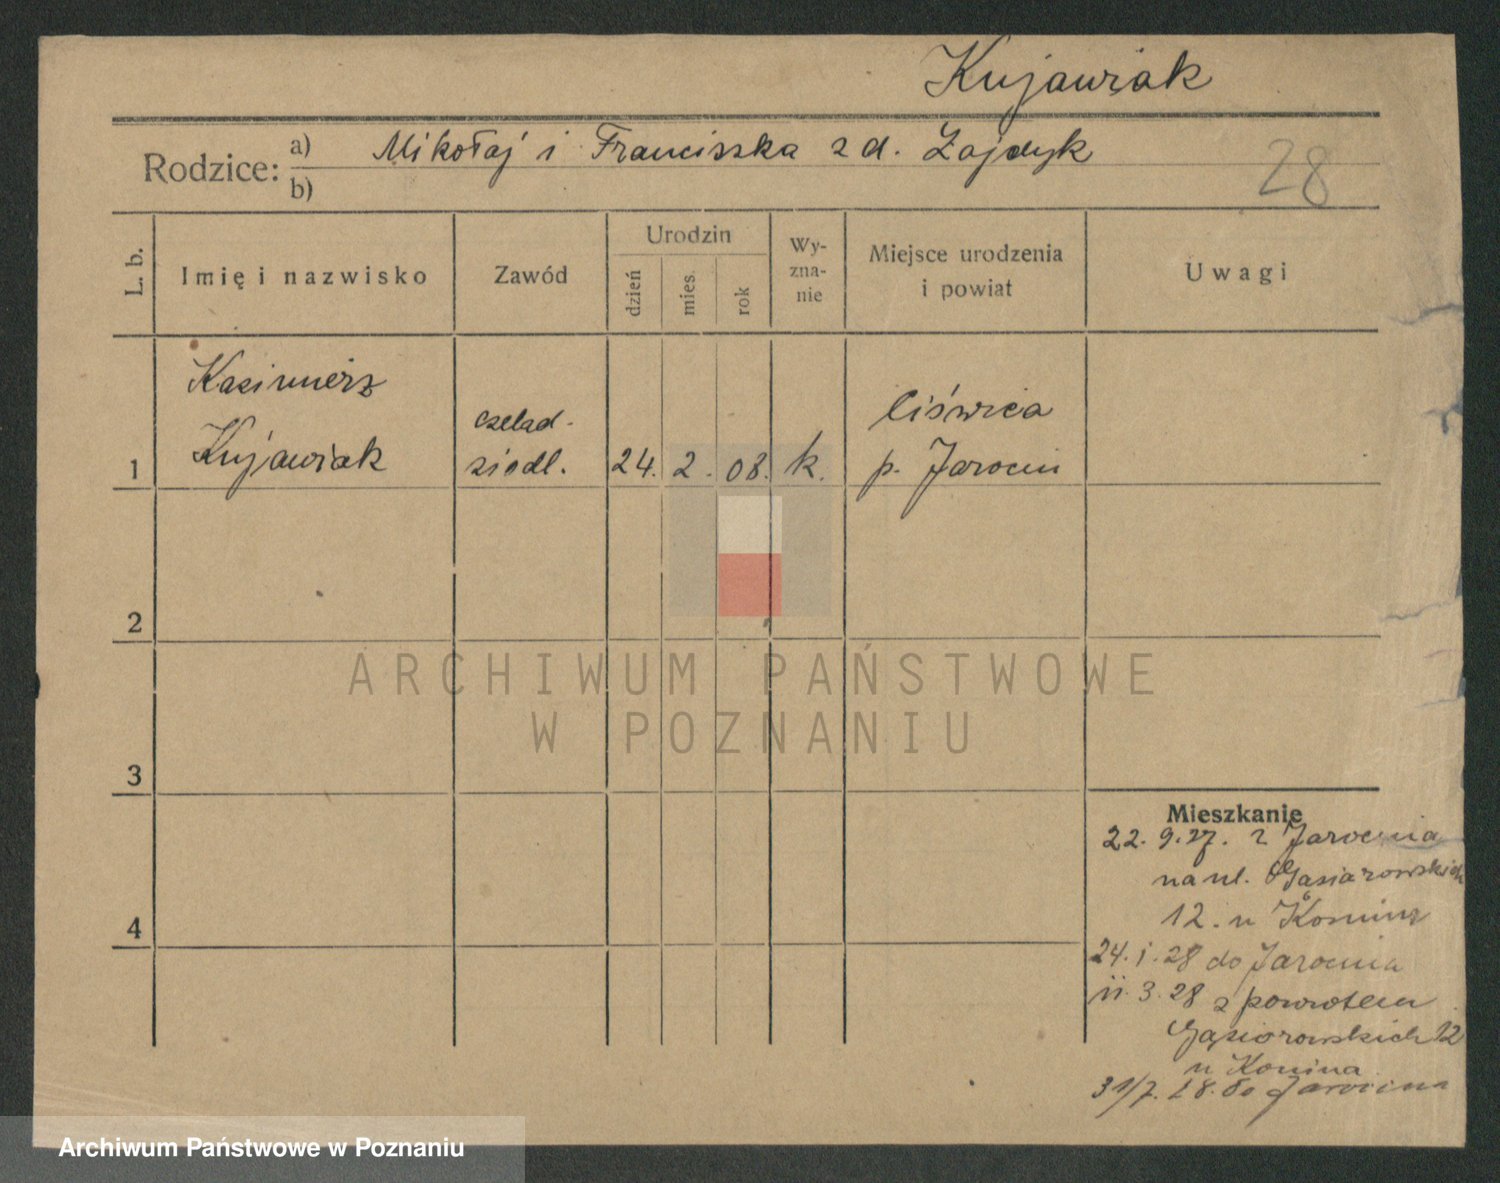 Kujawiak
Rodzice: a) Mikołaj i Franciszka z d. Zajdyk
b)
28
L. b.
Imię i nazwisko
Zawód
Urodzin
dzień
mies.
rok
Wy-
zna-
nie
Miejsce urodzenia
i powiat
Uwagi
1
Kazimierz
Kujawiak
czelad-
siodl.
24. 2. 08. k.
Ciświca
p. Jarocin
2
3
4
ARCHIWUM PAŃSTWOWE
W POZNANIU
Mieszkanie
22. 9. 27. z Jarocina
na ul. Gąsiorowskich
12. u
24. 1. 28 do Jarocina
11. 3. 28 z powrotem
Gąsiorowskich 12
u Konina
31/7. 28. do Jarocina
Archiwum Państwowe w Poznaniu